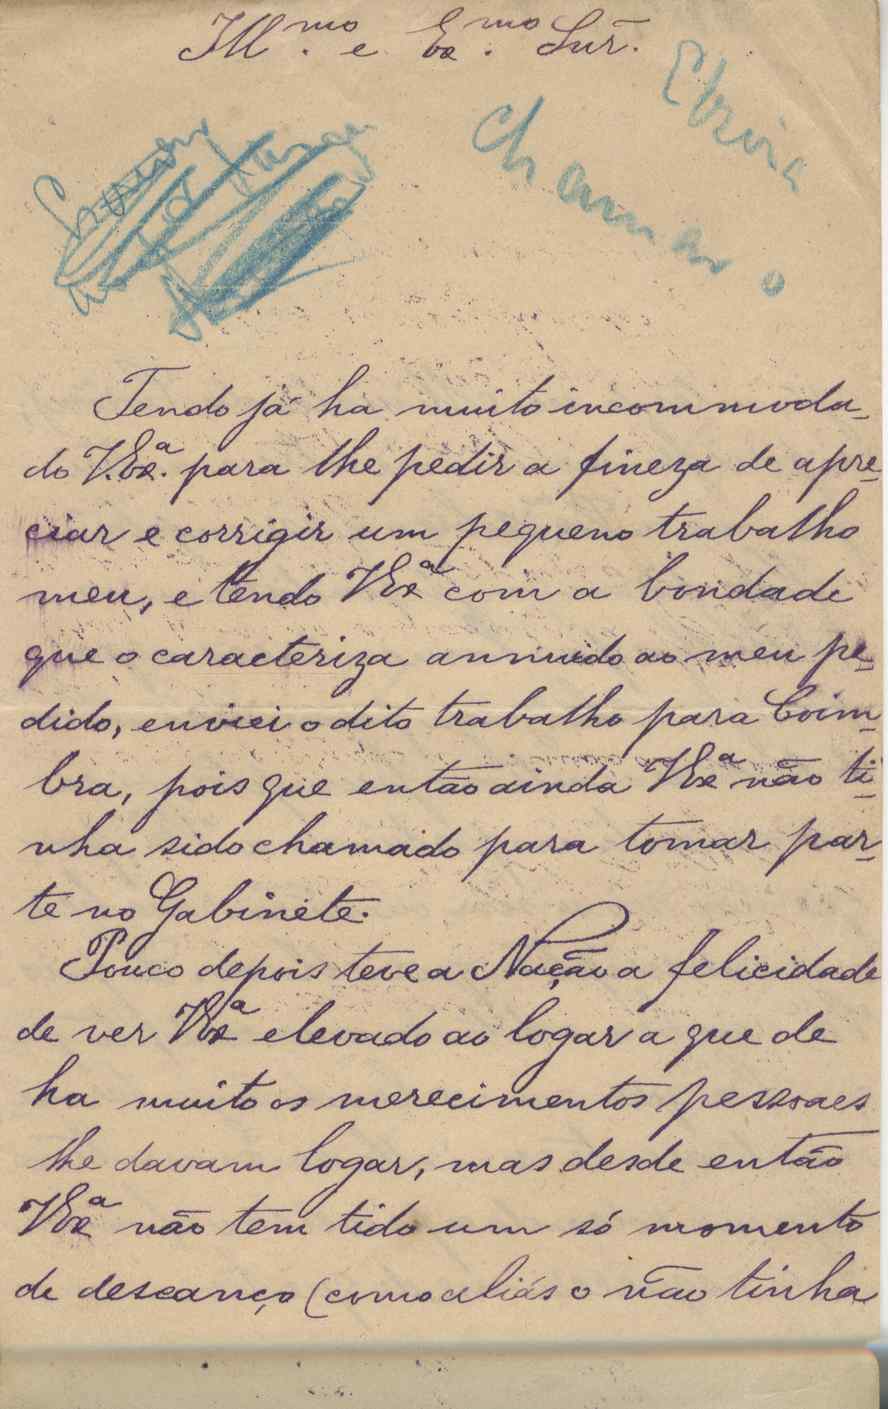 Ill.mo e Ex.mo Snr.
Tendo já ha muito incommoda-
do V.Ex.a para lhe pedir a fineza de apre-
ciar e corrigir um pequeno trabalho
meu, e tendo VExa com a bondade
que o caracteriza annuido ao meu pe-
dido, enviei o dito trabalho para Coim-
bra, pois que então ainda VExa não ti-
nha sido chamado para tomar par-
te no Gabinete.
Pouco depois teve a Nação a felicidade
de ver VExa elevado ao logar a que de
ha muito os merecimentos pessoaes
lhe davam logar, mas desde então
VExa não tem tido um só momento
de descanço (como aliás o não tinha